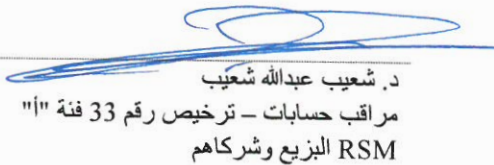 د. شعيب عبدالله شعيب
مراقب حسابات – ترخيص رقم 33 فئة "أ"
RSM البزيع وشركاهم